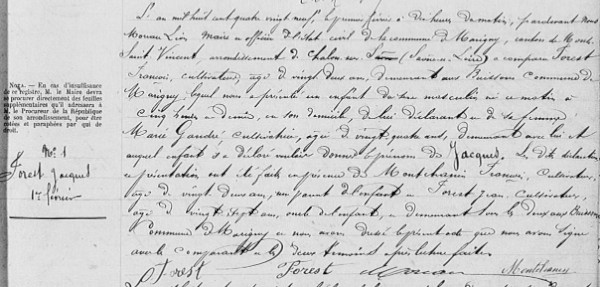 L'an mil huit cent quatre vingt neuf, le premier février à dix heures du matin, par devant Nous
Moreau Léon Maire et officier de l'état civil de la commune de Marigny, canton de Mont-
Saint Vincent, arrondissement de Chalon sur Saône (Saône-et-Loire) a comparu Forest
François, cultivateur, âgé de vingt deux ans, demeurant aux Buissons commune de
Marigny, lequel nous a présenté un enfant de sexe masculin né ce matin à
cinq heures et demie, en son domicile, de lui déclarant et de sa femme
Marie Gaudré cultivatrice, âgée de vingt quatre ans, demeurant avec lui et
auquel enfant il a déclaré vouloir donner le prénom de Jacques. Les dites déclaration
et présentation ont été faites en présence de Montchanin François, cultivateur,
âgé de vingt deux ans, parent de l'enfant et Forest Jean, cultivateur,
âgé de vingt sept ans, oncle de l'enfant, et demeurant tous les deux aux Buissons
Commune de Marigny et nous avons dressé le présent acte que nous avons signé
avec le comparant et les deux témoins après lecture faite.
Forest Forest Moreau Montchanin
NOTA. — En cas d'insuffisance
de ce registre, M. le Maire devra
se procurer directement des feuilles
supplémentaires qu'il adressera à
M. le Procureur de la République
de son arrondissement, pour être
cotées et paraphées par qui de
droit.
N° 1
Forest Jacques
1er février